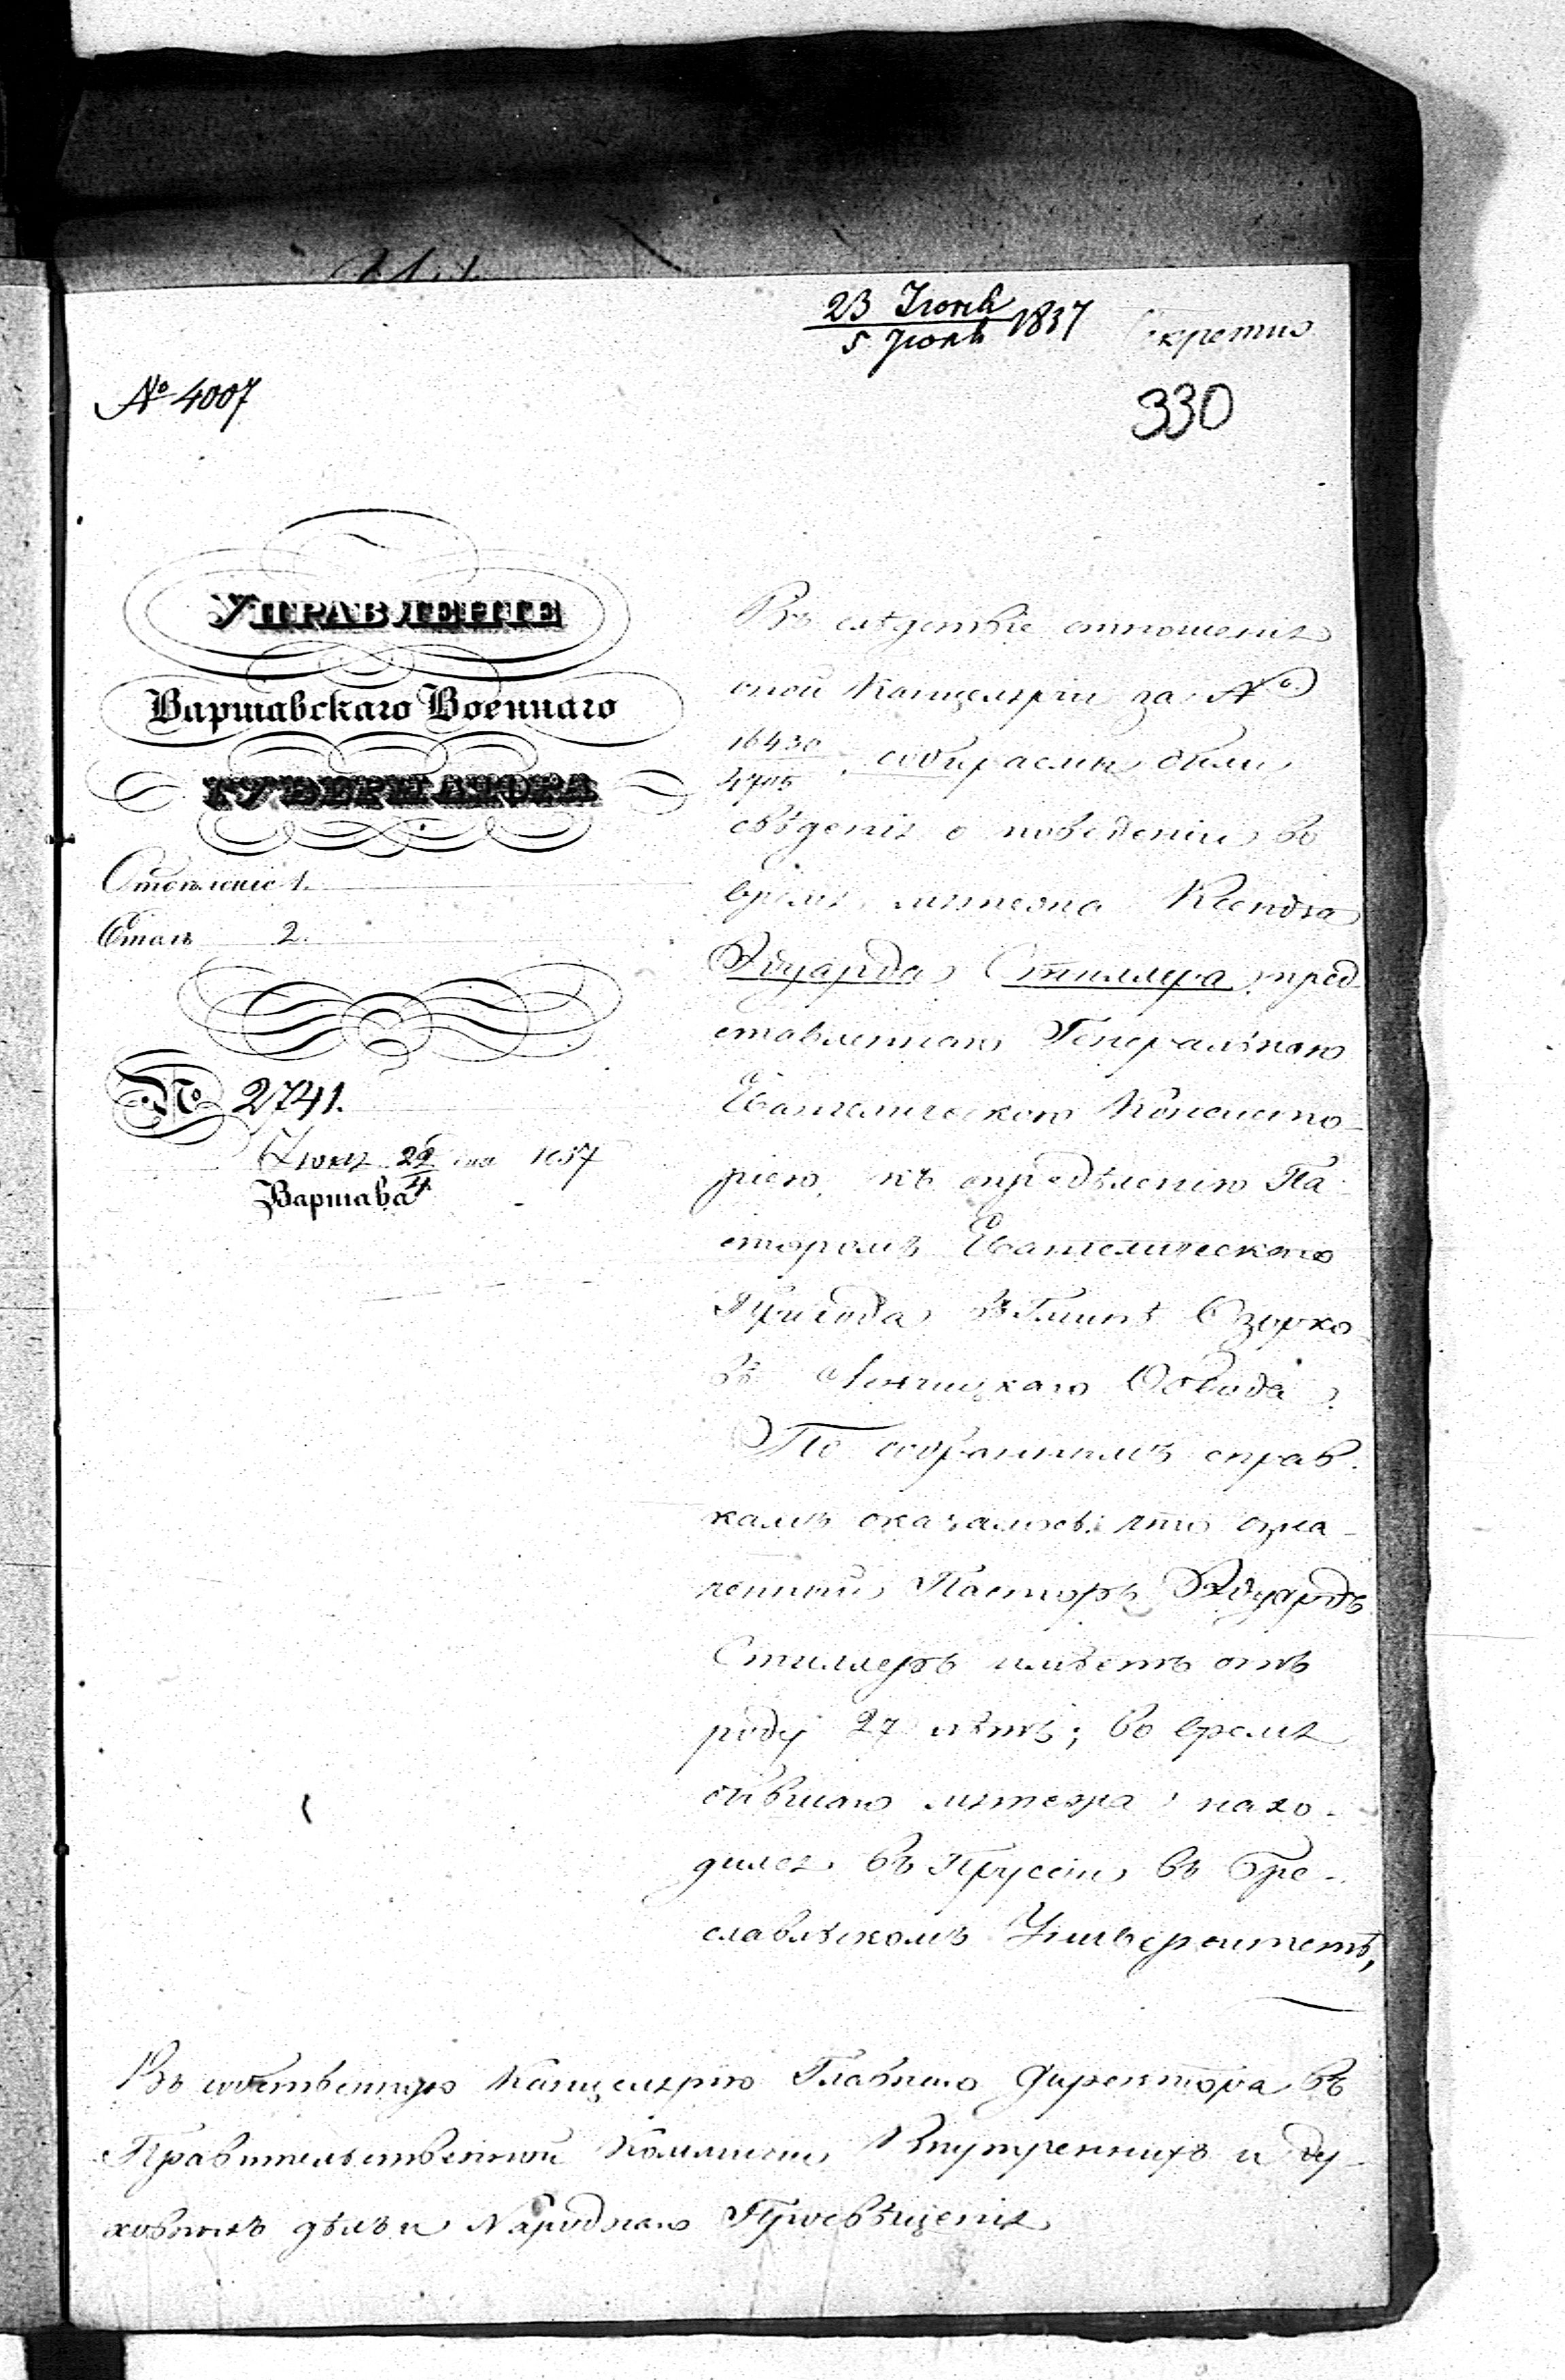 23 Іюня
5 Іюля 1837
Секретно
№ 4007
330
УПРАВЛЕНІЕ
Варшавскаго Военнаго
ГУБЕРНАТОРА
Отдѣленіе 1.
Столъ 2.
№ 2741.
Іюня 22/4 дня 1837
Варшава
Въ слѣдствіе отношенія
оной Канцеляріи за №
16430
4705, собираемы были
свѣденія о поведеніи во
время мятежа Ксендза
Эдуарда Стиллера, пред
ставленнаго Генеральною
Евангелическою Консисто-
ріею, къ опредѣленію Па-
сторомъ Евангелическаго
Прихода въ Гминѣ Озорко-
вѣ Лэнчицкаго Обвода.
По собраннымъ справ-
камъ оказалось: что озна-
ченный Пасторъ Эдуардъ
Стиллеръ имѣетъ отъ
роду 27 лѣтъ; во время
бывшаго мятежа нахо-
дился въ Пруссіи, въ Бре-
славльскомъ Университетѣ,
Въ собственную Канцелярію Главнаго Директора въ
Правительственной Коммисіи Внутреннихъ и Ду-
ховныхъ дѣлъ и Народнаго Просвѣщенія